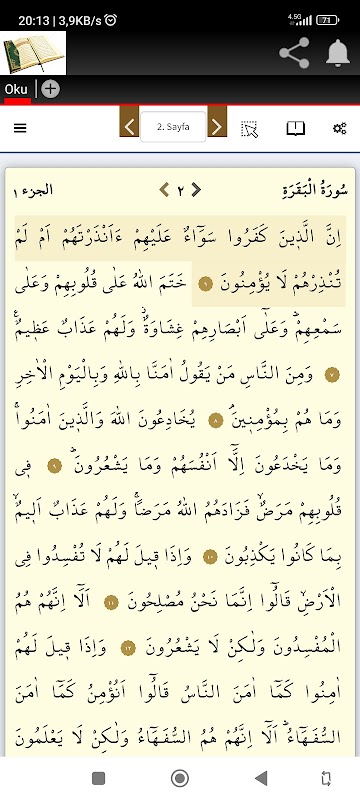 20:13 | 3,9KB/s
4.5G 71
Oku
2. Sayfa
سُورَةُ الْبَقَرَةِ ٢ الجزء ١
اِنَّ الَّذ۪ينَ كَفَرُوا سَوَٓاءٌ عَلَيْهِمْ ءَاَنْذَرْتَهُمْ اَمْ لَمْ
تُنْذِرْهُمْ لَا يُؤْمِنُونَ ٦ خَتَمَ اللّٰهُ عَلٰى قُلُوبِهِمْ وَعَلٰى
سَمْعِهِمْۜ وَعَلٰٓى اَبْصَارِهِمْ غِشَاوَةٌۘ وَلَهُمْ عَذَابٌ عَظ۪يمٌ۟
٧ وَمِنَ النَّاسِ مَنْ يَقُولُ اٰمَنَّا بِاللّٰهِ وَبِالْيَوْمِ الْاٰخِرِ
وَمَا هُمْ بِمُؤْمِن۪ينَۘ ٨ يُخَادِعُونَ اللّٰهَ وَالَّذ۪ينَ اٰمَنُواۚ
وَمَا يَخْدَعُونَ اِلَّٓا اَنْفُسَهُمْ وَمَا يَشْعُرُونَۜ ٩ ف۪ي
قُلُوبِهِمْ مَرَضٌۙ فَزَادَهُمُ اللّٰهُ مَرَضًاۚ وَلَهُمْ عَذَابٌ اَل۪يمٌۙ
بِمَا كَانُوا يَكْذِبُونَ ١٠ وَاِذَا ق۪يلَ لَهُمْ لَا تُفْسِدُوا فِي
الْاَرْضِۙ قَالُٓوا اِنَّمَا نَحْنُ مُصْلِحُونَ ١١ اَلَٓا اِنَّهُمْ هُمُ
الْمُفْسِدُونَ وَلٰكِنْ لَا يَشْعُرُونَ ١٢ وَاِذَا ق۪يلَ لَهُمْ
اٰمِنُوا كَمَٓا اٰمَنَ النَّاسُ قَالُٓوا اَنُؤْمِنُ كَمَٓا اٰمَنَ
السُّفَهَٓاءُۜ اَلَٓا اِنَّهُمْ هُمُ السُّفَهَٓاءُ وَلٰكِنْ لَا يَعْلَمُونَ